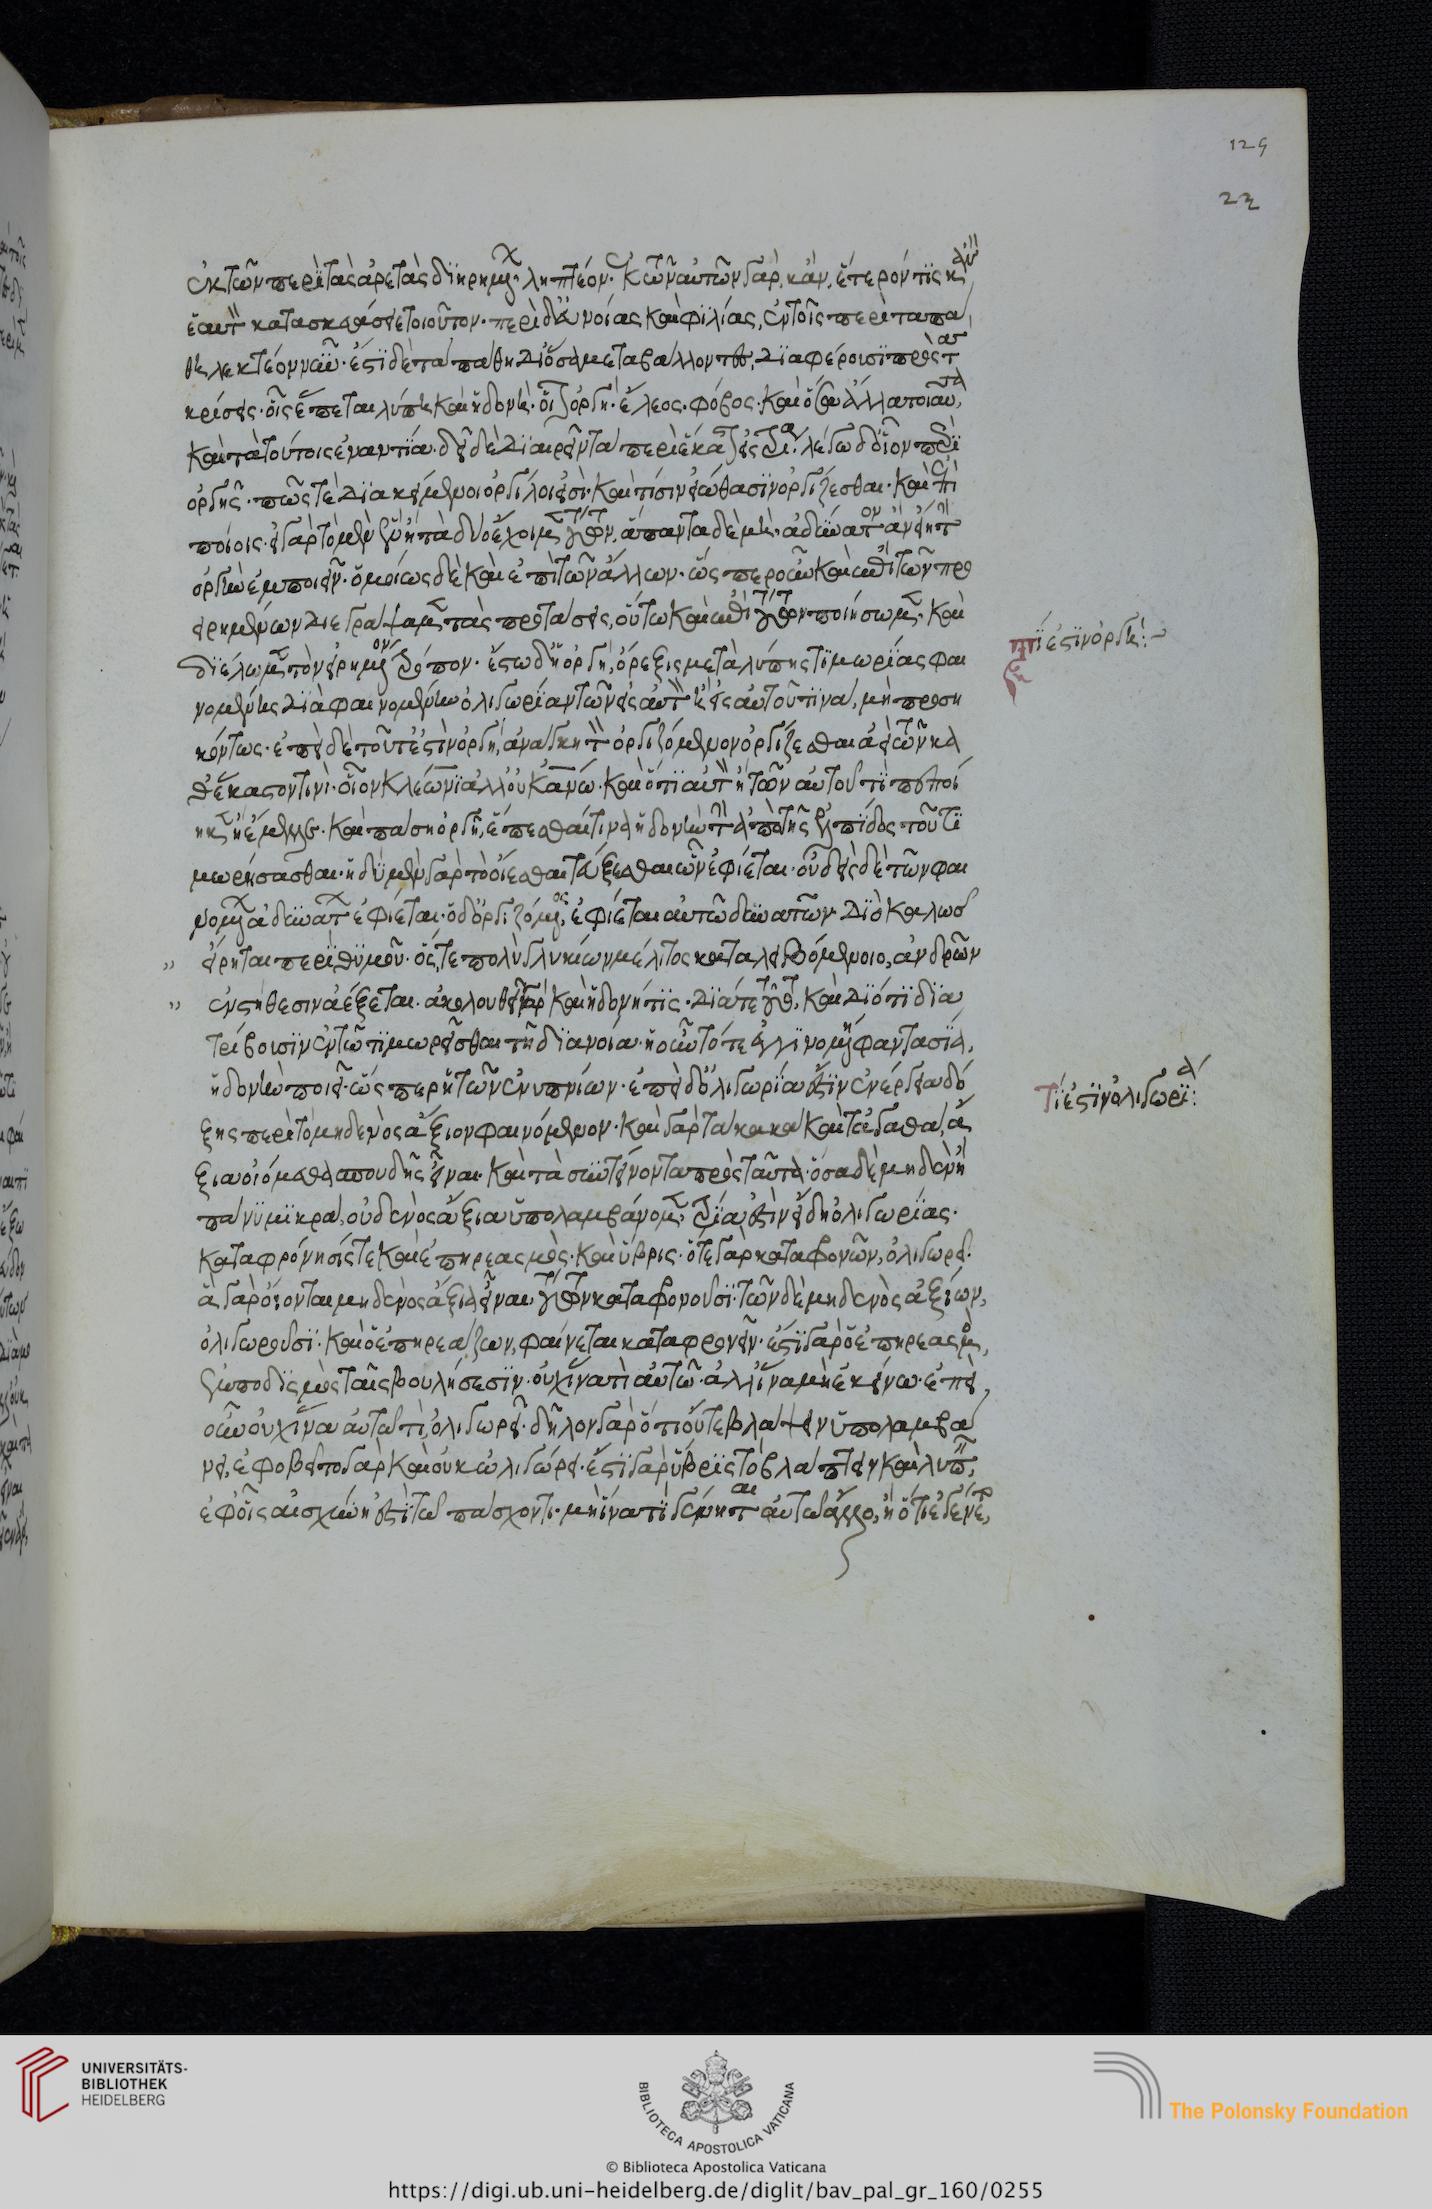 129
22
ἐκ τῶν περὶ τὰς ἀρετὰς διῃρημένων ληπτέον· ἐκ τῶν αὐτῶν γὰρ κἂν ἕτερόν τις καὶ
ἑαυτὸν κατασκευάσειε τοιοῦτον· περὶ δ' εὐνοίας καὶ φιλίας, ἐν τοῖς περὶ τὰ πά
θη λεκτέον νῦν· ἔστι δὲ τὰ πάθη δι' ὅσα μεταβάλλοντες, διαφέρουσι πρὸς τὰς
κρίσεις· οἷς ἕπεται λύπη καὶ ἡδονή· οἷον ὀργή· ἔλεος· φόβος· καὶ ὅσα ἄλλα τοιαῦτα,
καὶ τὰ τούτοις ἐναντία· δεῖ δὲ διαιρεῖν τὰ περὶ ἕκαστον εἰς τρία· λέγω δ' οἷον περὶ
ὀργῆς· πῶς τε διακείμενοι ὀργίλοι εἰσὶ· καὶ τίσιν εἰώθασιν ὀργίζεσθαι· καὶ ἐπὶ
ποίοις· εἰ γὰρ τὸ μὲν ἓν ἢ τὰ δύο ἔχοιμεν τούτων, ἅπαντα δὲ μή, ἀδύνατον ἂν εἴη τὴν
ὀργὴν ἐμποιεῖν· ὁμοίως δὲ καὶ ἐπὶ τῶν ἄλλων· ὥσπερ οὖν καὶ ἐπὶ τῶν προ
ειρημένων διεγράψαμεν τὰς προτάσεις, οὕτω καὶ ἐπὶ τούτων ποιήσωμεν· καὶ
διέλωμεν τὸν εἰρημένον τρόπον· ἔστω δὴ ὀργή, ὄρεξις μετὰ λύπης τιμωρίας φαι
νομένης διὰ φαινομένην ὀλιγωρίαν τῶν εἰς αὐτὸν ἢ εἰς αὐτοῦ τινα, μὴ προση
κόντως· εἰ δὲ τοῦτ' ἐστὶν ὀργή, ἀνάγκη τὸν ὀργιζόμενον ὀργίζεσθαι ἀεὶ τῶν κα
θ' ἕκαστόν τινι· οἷον Κλέωνι ἀλλ' οὐκ ἀνθρώπω· καὶ ὅτι αὐτὸν ἢ τῶν αὐτοῦ τι πεποί
ηκεν ἢ ἔμελλε· καὶ πάση ὀργῆ, ἕπεσθαί τινα ἡδονὴν τὴν ἀπὸ τῆς ἐλπίδος τοῦ τι
μωρήσασθαι· ἡδὺ μὲν γὰρ τὸ οἴεσθαι τεύξεσθαι ὧν ἐφίεται· οὐδεὶς δὲ τῶν φαι
νομένων ἀδυνάτων ἐφίεται· ὁ δ' ὀργιζόμενος, ἐφίεται αὐτῷ δυνατῶν· διὸ καλῶς
εἴρηται περὶ θυμοῦ· ὅς τε πολὺ γλυκίων μέλιτος καταλειβομένοιο, ἀνδρῶν
ἐν στήθεσιν ἀέξεται· ἀκολουθεῖ γὰρ καὶ ἡδονή τις· διά τε τοῦτο, καὶ διότι δια
τρίβουσιν ἐν τῷ τιμωρεῖσθαι τῆ διανοία· ἡ οὖν τότε ἐγγινομένη φαντασία,
ἡδονὴν ποιεῖ· ὥσπερ ἡ τῶν ἐνυπνίων· ἐπεὶ δ' ὀλιγωρία ἐστὶν ἐνέργεια δό
ξης περὶ τὸ μηδενὸς ἄξιον φαινόμενον· καὶ γὰρ τὰ κακὰ καὶ τὰ ἀγαθὰ, ἄ
ξια οἰόμεθα σπουδῆς εἶναι· καὶ τὰ συντείνοντα πρὸς ταῦτα· ὅσα δὲ μηδὲν ἢ
πάνυ μικρά, οὐδενὸς ἄξια ὑπολαμβάνομεν· τρία ἐστὶν εἴδη ὀλιγωρίας·
καταφρόνησίς τε καὶ ἐπηρεασμὸς· καὶ ὕβρις· ὅ τε γὰρ καταφρονῶν, ὀλιγωρεῖ·
ἃ γὰρ οἴονται μηδενὸς ἄξια εἶναι, τούτων καταφρονοῦσι· τῶν δὲ μηδενὸς ἀξίων,
ὀλιγωροῦσι· καὶ ὁ ἐπηρεάζων, φαίνεται καταφρονεῖν· ἔστι γὰρ ὁ ἐπηρεασμὸς,
ἐμποδισμὸς ταῖς βουλήσεσιν· οὐχ ἵνα τὶ αὑτῷ· ἀλλ' ἵνα μὴ ἐκείνω· ἐπεὶ
οὖν οὐχ ἵνα αὑτῷ τὶ, ὀλιγωρεῖ· δῆλον γὰρ ὅτι οὔτε βλάψειν ὑπολαμβά
νει, ἐφοβεῖτο γὰρ καὶ οὐκ ὠλιγώρει· ἔστι γὰρ ὕβρις τὸ βλάπτειν καὶ λυπεῖν,
ἐφ' οἷς αἰσχύνη ἐστὶ τῷ πάσχοντι· μὴ ἵνα τὶ γένηται αὐτῷ ἄλλο, ἢ ὅτι ἐγένετο,
τί ἐστιν ὀργή:
τί ἐστιν ὀλιγωρία:
UNIVERSITÄTS-
BIBLIOTHEK
HEIDELBERG
BIBLIOTECA APOSTOLICA VATICANA
© Biblioteca Apostolica Vaticana
The Polonsky Foundation
https://digi.ub.uni-heidelberg.de/diglit/bav_pal_gr_160/0255